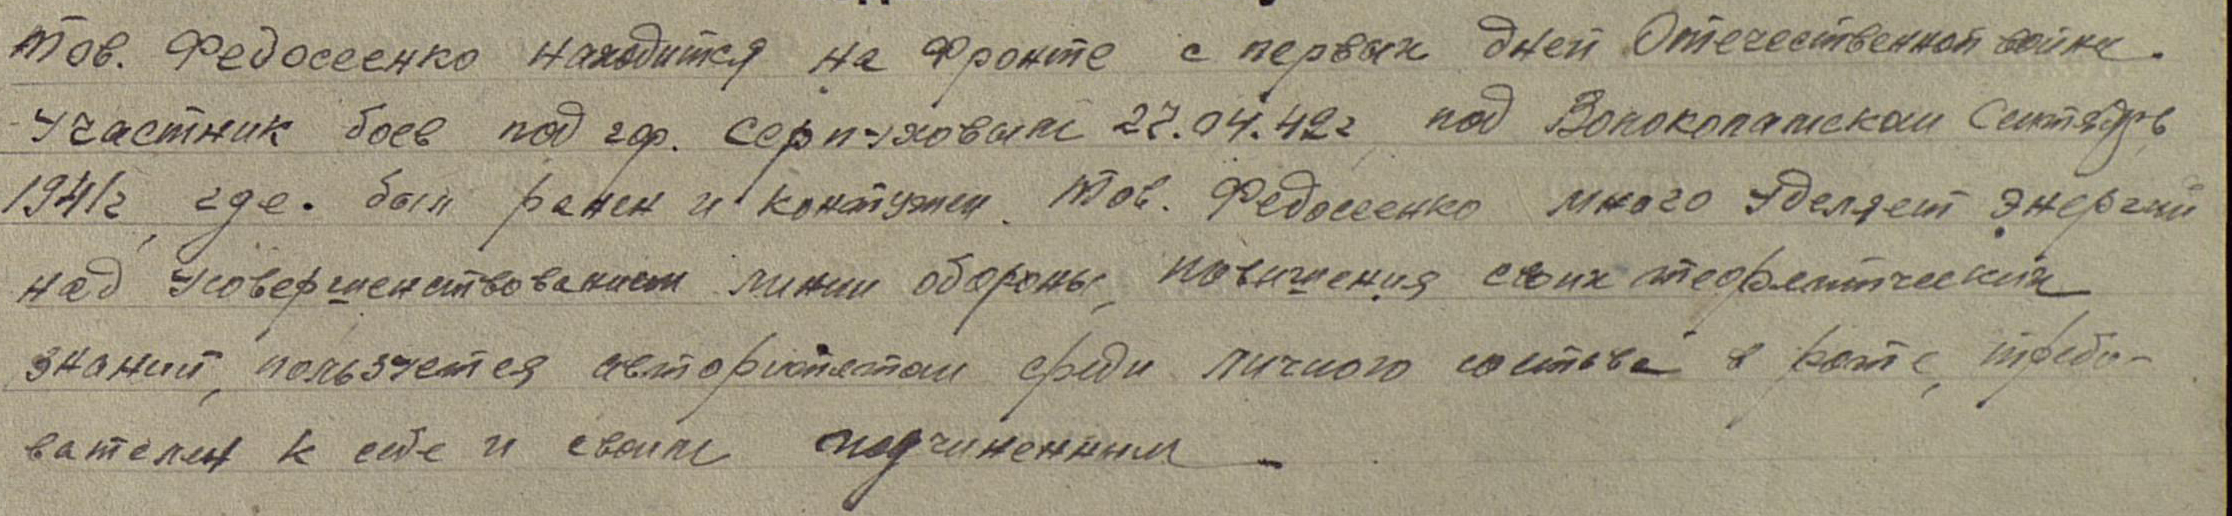 Тов. Федосеенко находится на фронте с первых дней Отечественной войны.
Участник боев под гор. Серпуховым 27.04.42г под Волоколамском Сентябрь
1941г, где. был ранен и контужен. Тов. Федосеенко много уделяет энергии
над усовершенствованием линии обороны, повишения своих теоретических
знаний, пользуется авторитетом среди личного состава в роте, требо-
вателен к себе и своим подчиненным